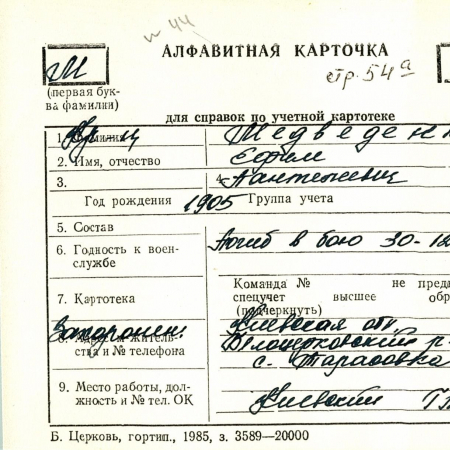 N 44
АЛФАВИТНАЯ КАРТОЧКА
М
(первая бук-
ва фамилии)
стр. 54а
для справок по учетной картотеке
1. Фамилия Медведенк
2. Имя, отчество Ефим
3. 4. Пантелеевич
Год рождения 1905 Группа учета
5. Состав
6. Годность к воен-
службе
Погиб в бою 30-12
Команда № не предн
7. Картотека спецучет высшее обр
(подчеркнуть)
Захоронен: Киевская обл.
8. Адрес житель-
ства и № телефона
Белоцерковский р-
с. Тарасовка
9. Место работы, дол-
жность и № тел. ОК
Киевский
Б. Церковь, гортип., 1985, з. 3589—20000